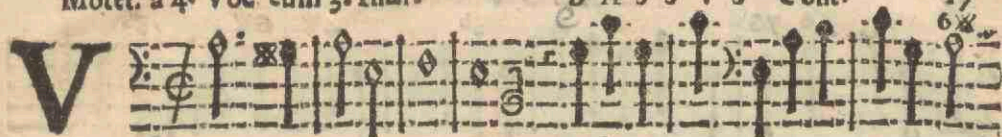 Motet. a 4. Voc cum 5. Instr. B A S S V S Cont. 17
6
V